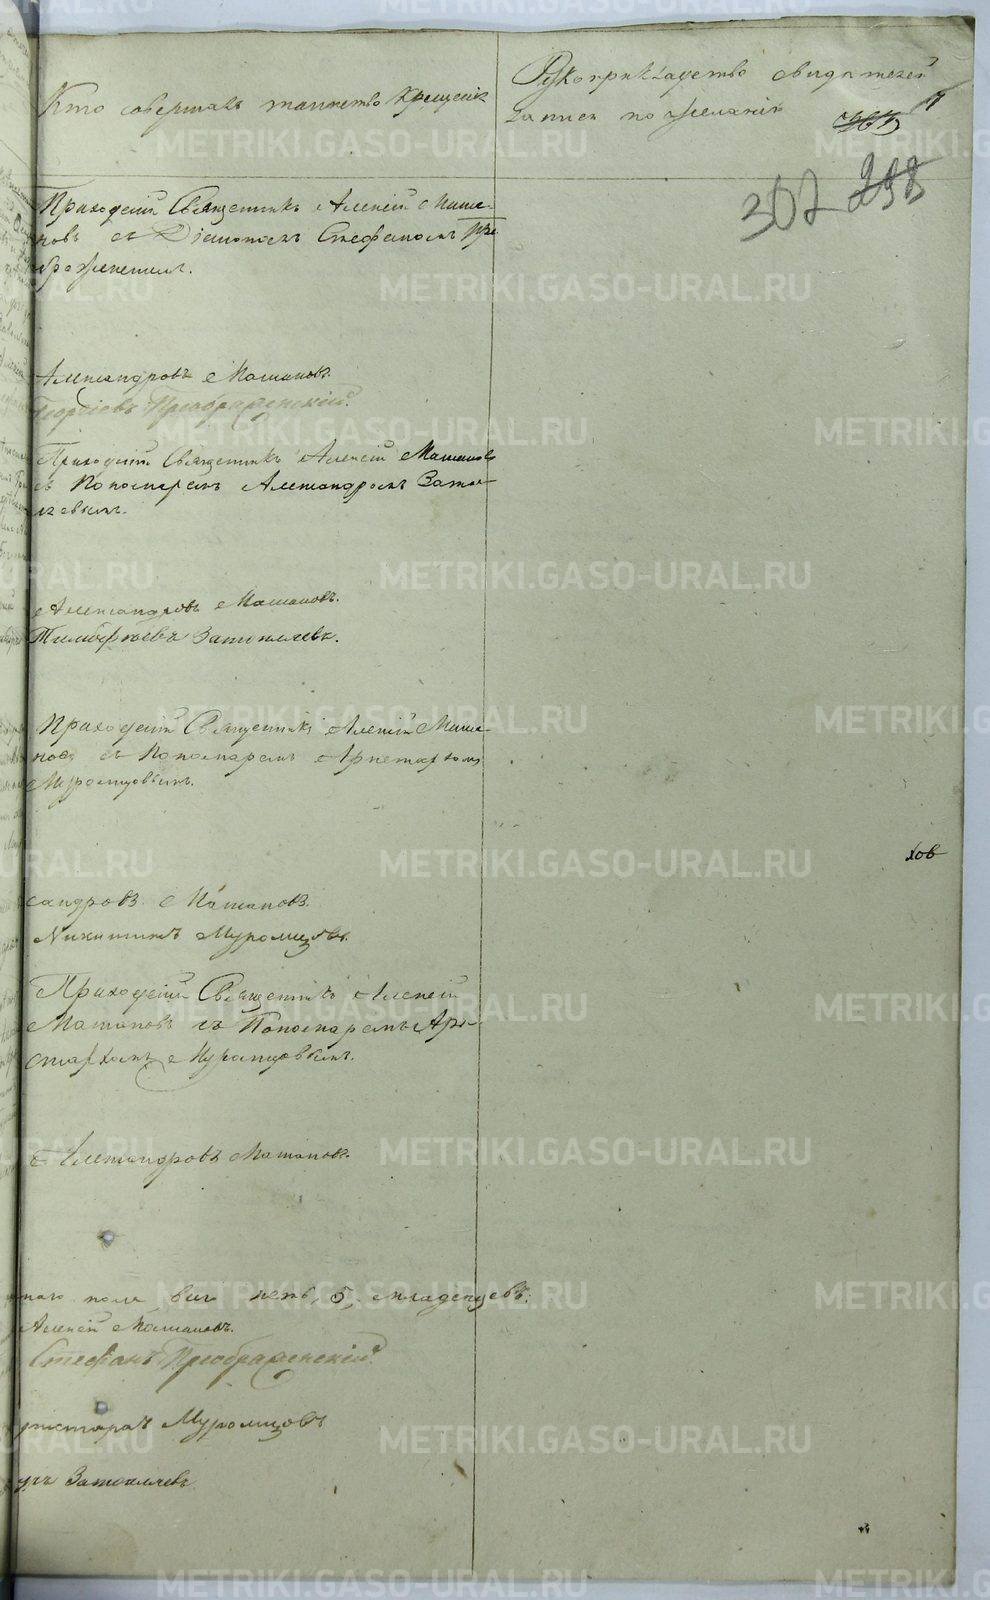 Кто совершалъ таинство Крещенія
Рукоприкладство свидѣтелей
записи по желанію
307 298
Приходскій Священникъ Алексѣй Маша-
новъ съ Діакономъ Стефаномъ Пре-
ображенскимъ.
Александровъ Машановъ.
Георгіевъ Преображенскій.
Приходскій Священникъ Алексѣй Машановъ
съ Пономаремъ Александромъ Затоп-
ляевымъ.
Александровъ Машановъ.
Тимофѣевъ Затопляевъ.
Приходскій Священникъ Алексѣй Маша-
новъ съ Пономаремъ Аристархомъ
Муромцовымъ.
хов
сандровъ Машановъ.
Никитинъ Муромцовъ.
Приходскій Священникъ Алексѣй
Машановъ съ Пономаремъ Ари-
стархомъ Муромцовымъ.
Александровъ Машановъ.
наго пола всего пять, 5, младенцевъ.
Алексѣй Машановъ.
Стефанъ Преображенскій.
ристархъ Муромцовъ
ръ Затопляевъ
METRIKI.GASO-URAL.RU